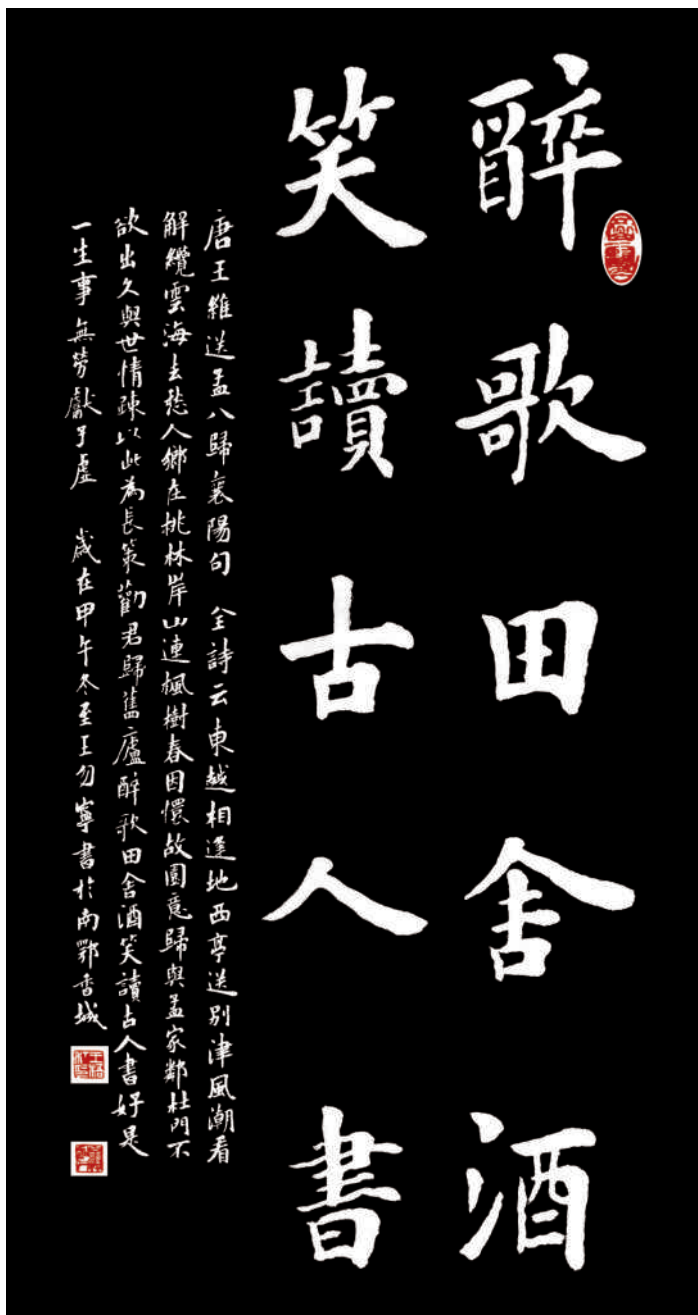 醉歌田舍酒
笑讀古人書
唐王維送孟八歸襄陽句 全詩云東越相逢地西亭送別津風潮看
解纜雲海去愁人鄉在桃林岸山連楓樹春因懷故園意歸與孟家鄰杜門不
欲出久與世情疎以此為長策勸君歸舊廬醉歌田舍酒笑讀古人書好是
一生事無勞獻子虛 歲在甲午冬至王勿寧書於南鄂香城